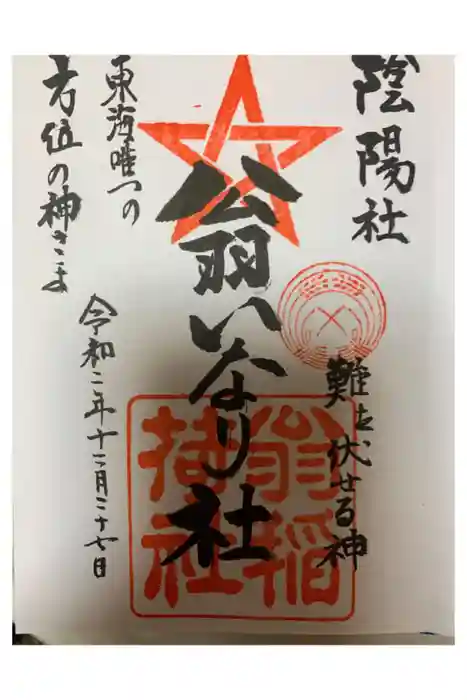 陰陽社
難を伏せる神
翁いなり社
東海唯一つの
方位の神さま
令和二年十二月二十七日
翁稲
荷社